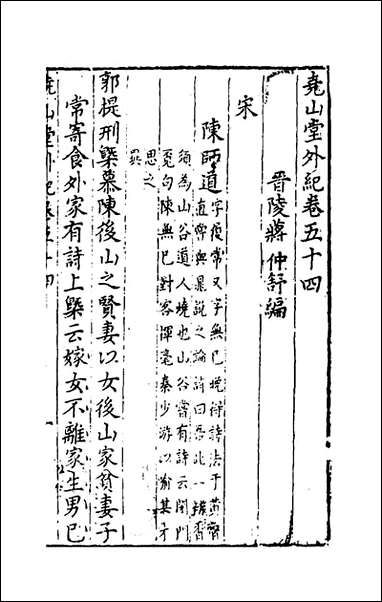 堯山堂外紀卷五十四
晋陵蔣仲舒編
宋
陳師道
字履常又字無已晚得詩法于黃魯
直嘗與晁說之論詩曰吾此一瓣香
須為山谷道人燒也山谷嘗有詩云閉門
覓句陳無已對客揮毫秦少游以喻其才
思之
異
郭提刑槩慕陳後山之賢妻以女後山家貧妻子
常寄食外家有詩上槩云嫁女不離家生男已
堯山堂外紀卷五十四 一